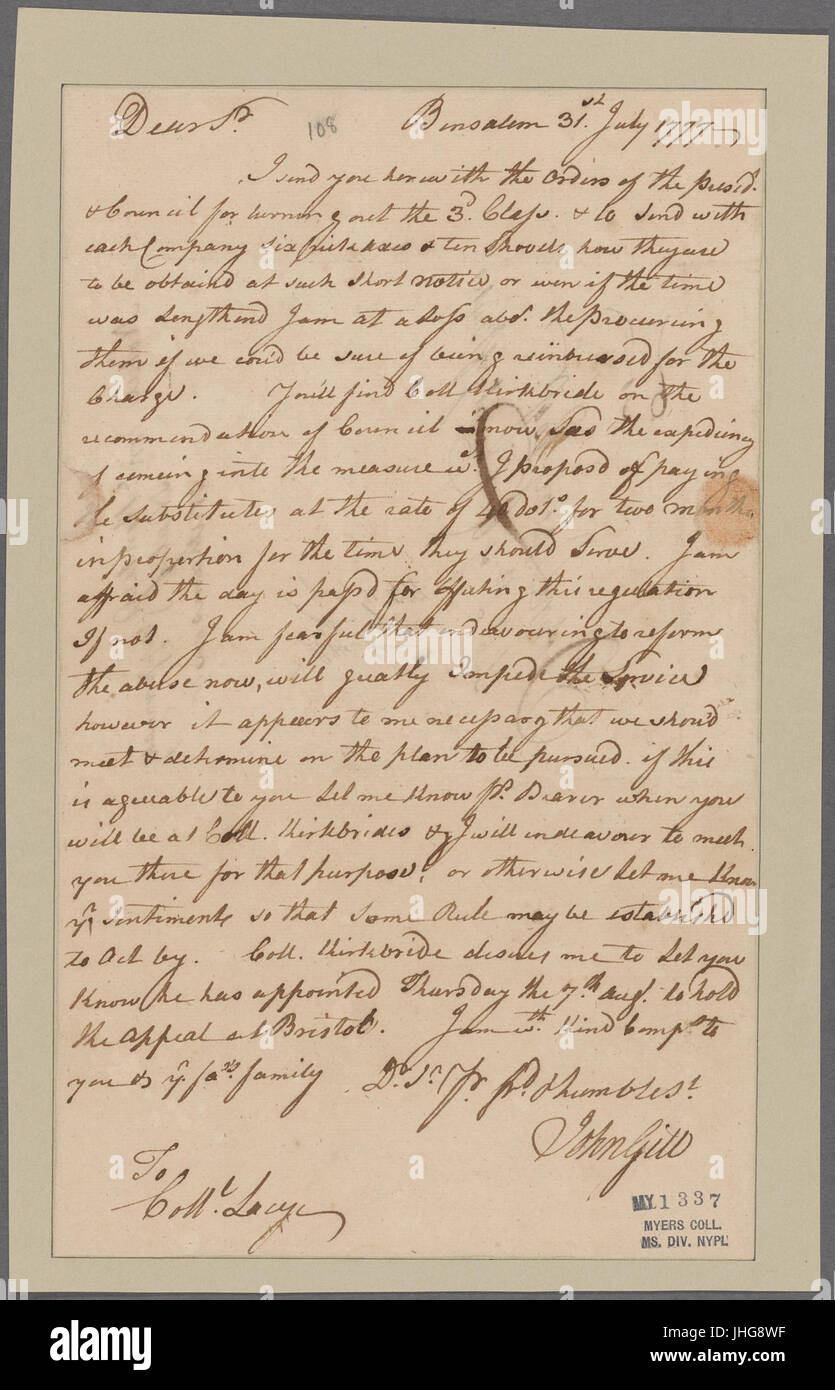 Dear Sr. 108 Bensalem 31.st July 1777
I send you herewith the Orders of the Presd.
& Council for turning out the 3d. Class. & to send with
each Company six pickaxes & ten shovels how they are
to be obtaind at such short notice or even if the time
was Lengthend I am at a Loss abt. the procuring
them if we could be sure of being reinbursed for the
Charge. You'll find Coll Kirkbride on the
recommendation of Council now sees the expediency
comeing into the measure I proposd of paying
substitutes at the rate of 40 dols. for two months
in proportion for the time they should Serve. I am
affraid the day is passd for affecting this regulation
If not. I am fearful that endeavouring to reform
the abuse now, will greatly Impede the Service
however it appears to me necessary that we shou'd
meet & determine on the plan to be pursued. if this
is agreeable to you Let me Know pr. Bearer when you
will be at Coll. Kirkbrides & I will endeavour to meet
you there for that purpose, or otherwise Let me Know
yr. sentiments so that some Rule may be establish'd
to Act by. Coll. Kirkbride desires me to Let you
Know he has appointed Thursday the 7.th augt. to hold
the appeal at Bristol. I am wth. Kind Comps. to
you & yr. family Dr. Sr. Yr. frd. & humble st.
John Gill
To
Coll.l Lacey
MY.1337
MYERS COLL.
MS. DIV. NYPL
alamy
alamy stock photo
JHG8WF
www.alamy.com